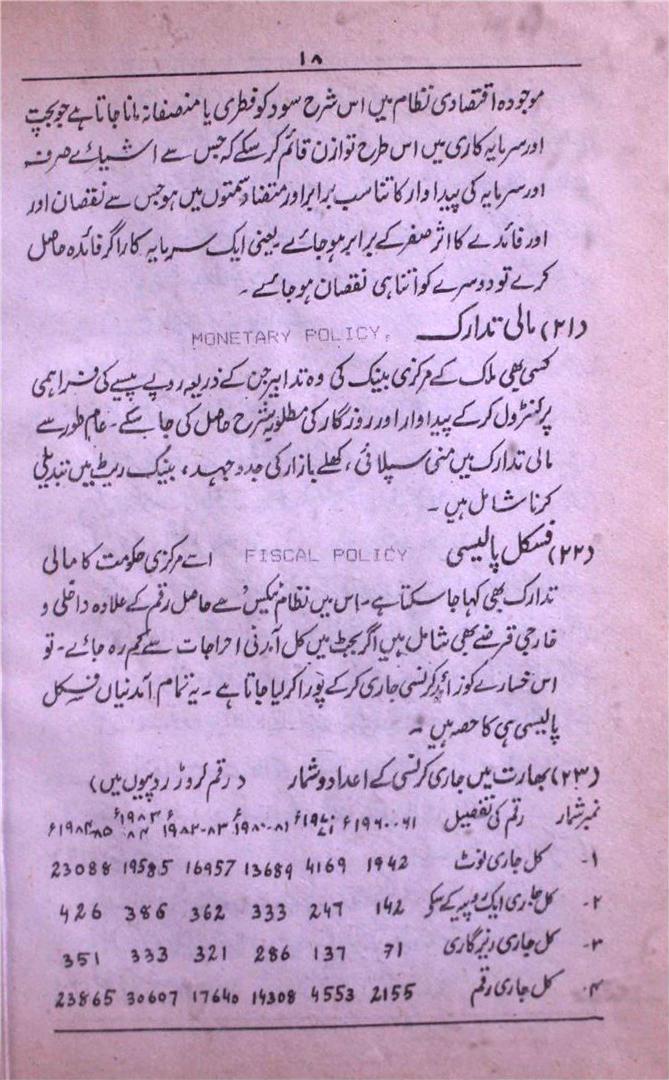 ۱۸
موجودہ اقتصادی نظام میں اس شرح سود کو فطری یا منصفانہ مانا جاتا ہے جو بچت
اور سرمایہ کاری میں اس طرح توازن قائم کر سکے کہ جس سے اشیائے صرفہ
اور سرمایہ کی پیداوار کا تناسب برابر اور متضاد سمتوں میں ہو جس سے نقصان اور
اور فائدے کا اثر صفر کے برابر ہو جائے یعنی ایک سرمایہ کار اگر فائدہ حاصل
کرے تو دوسرے کو اتنا ہی نقصان ہو جائے ۔
(۲۱) مالی تدارک MONETARY POLICY.
کسی بھی ملک کے مرکزی بینک کی وہ تدابیر جن کے ذریعہ روپے پیسے کی فراہمی
پر کنٹرول کر کے پیداوار اور روزگار کی مطلوبہ شرح حاصل کی جا سکے ۔ عام طور سے
مالی تدارک میں منی سپلائی ، کھلے بازار کی جدوجہد ، بینک ریٹ میں تبدیلی
کرنا شامل ہیں ۔
(۲۲) فسکل پالیسی FISCAL POLICY اسے مرکزی حکومت کا مالی
تدارک بھی کہا جا سکتا ہے ۔ اس میں نظام ٹیکس سے حاصل رقم کے علاوہ داخلی و
خارجی قرضے بھی شامل ہیں اگر بجٹ میں کل آمدنی اخراجات سے کم رہ جائے ۔ تو
اس خسارے کو زائد کرنسی جاری کر کے پورا کر لیا جاتا ہے ۔ یہ تمام آمدنیاں فسکل
پالیسی ہی کا حصہ ہیں ۔
(۲۳) بھارت میں جاری کرنسی کے اعداد و شمار (رقم کروڑ روپیوں میں)
نمبر شمار رقم کی تفصیل ۱۹۶۰-۶۱ء ۱۹۷۰-۷۱ء ۱۹۸۰-۸۱ء ۱۹۸۲-۸۳ء ۱۹۸۳-۸۴ء ۱۹۸۴-۸۵ء
۱- کل جاری نوٹ 1942 4169 13689 16957 19585 23088
۲- کل جاری ایک روپیہ کے سکے 142 247 333 362 386 426
۳- کل جاری ریزگاری 71 137 286 321 333 351
۴- کل جاری رقم 2155 4553 14308 17640 30607 23865